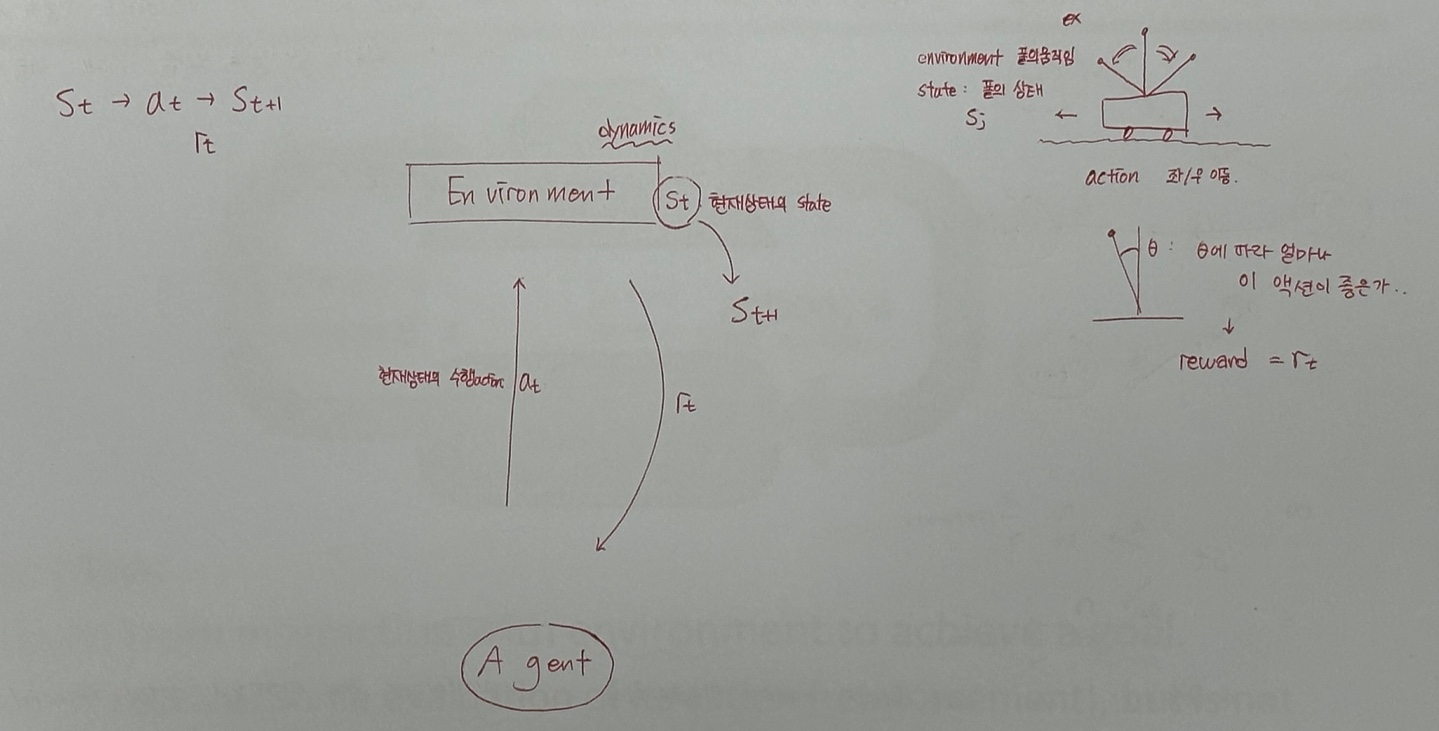 St → at → St+1
rt
dynamics
Environment
St
현재상태의 state
St+1
현재상태의 수행action
at
rt
Agent
ex
environment 폴의움직임
state : 폴의 상태
Sj
← →
action 좌/우 이동.
θ : θ에 따라 얼마나
이 액션이 좋은가..
↓
reward = rt